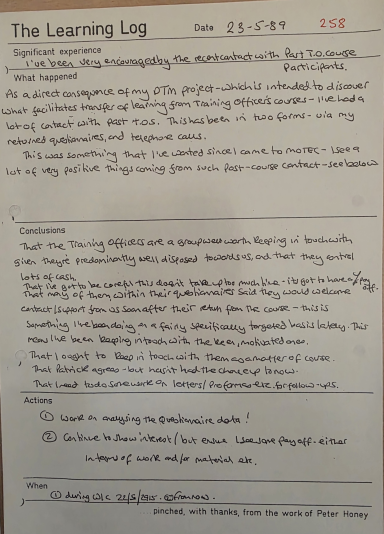 The Learning Log Date 23-5-89 258
Significant experience
I've been very encouraged by the recent contact with Past T.O. course
Participants.
What happened
As a direct consequence of my DTM project - which is intended to discover
what facilitates transfer of learning from Training Officers courses - I've had a
lot of contact with Past T.O.s. This has been in two forms - via my
returned questionnaires, and telephone calls.
This was something that I've wanted since I came to MOTEC - I see a
lot of very positive things coming from such post-course contact - see below
Conclusions
That the Training Officers are a group well worth keeping in touch with
given they're predominantly well disposed towards us, and that they control
lots of cash.
That I've got to be careful this doesn't take up too much time - it's got to have a pay
off.
That many of them within their questionnaires said they would welcome
contact/support from us soon after their return from the course - this is
something I've been doing on a fairly specifically targeted basis lately. This
means I've been keeping in touch with the keen, motivated ones.
That I ought to keep in touch with them as a matter of course.
That Patrick agrees - but hasn't had the chance up to now.
That I need to do some work on letters/Proformas etc. for follow-ups.
Actions
① Work on analysing the Questionnaire data!
② Continue to show interest/but ensure I see some pay off - either
in terms of work and/or material etc.
When
① during W/C 22/5/ ② from now.
...pinched, with thanks, from the work of Peter Honey